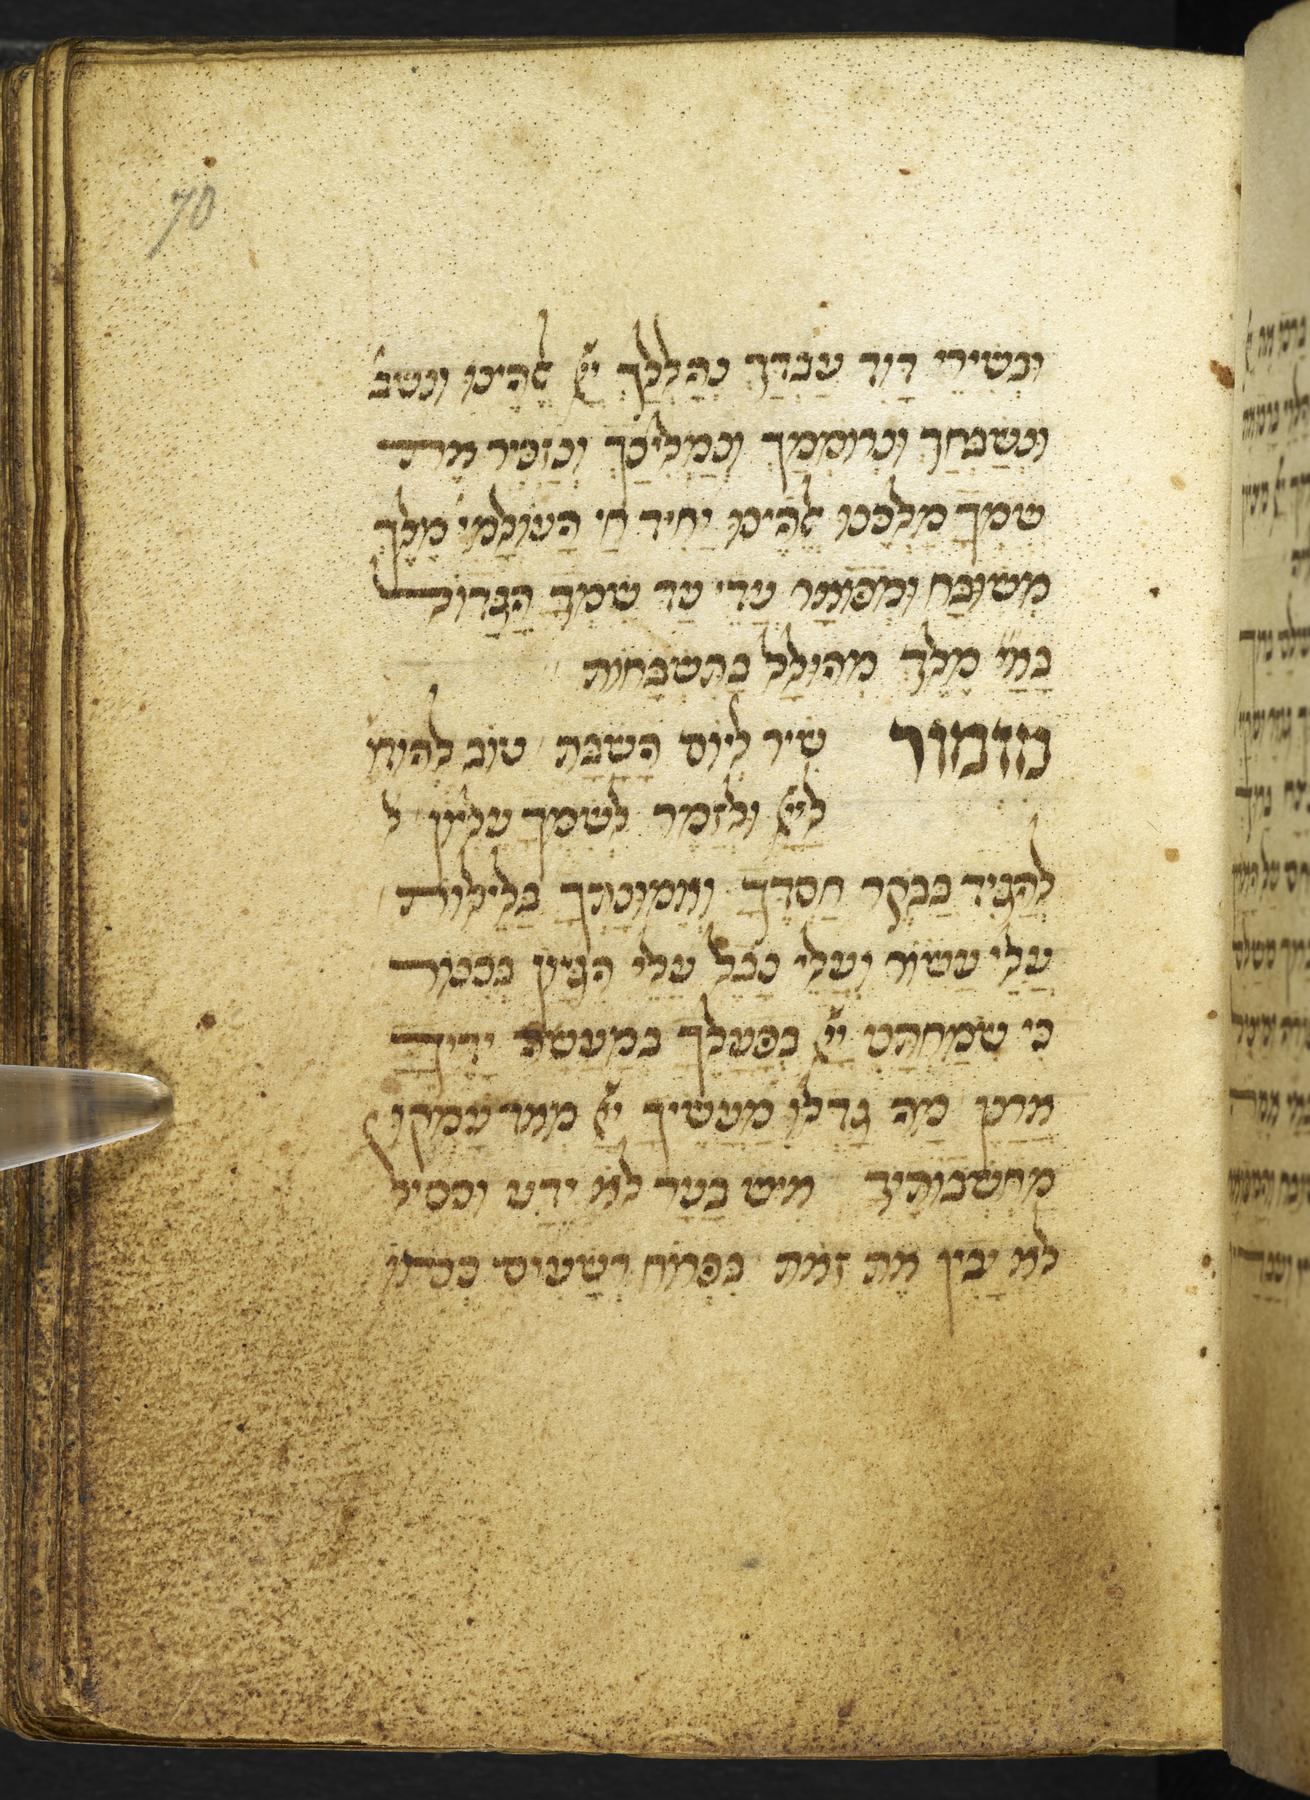 70
וּבְשִׁירֵי דָוִד עַבְדֶּךָ נְהַלֶּלְךָ יְיָ אֱלֹהֵינוּ ונשב׳
וּנְשַׁבֵּחַךְ וּנְרוֹמְמָךְ וְנַמְלִיכָךְ וְנַזְכִּיר אֶת
שִׁמְךָ מַלְכֵּנוּ אֱלֹהֵינוּ יָחִיד חַי הָעוֹלָמִי׳ מֶלֶךְ
מְשׁוּבָּח וּמְפוֹאָר עֲדֵי עַד שְׁמוֹ הַגָּדוֹל
בָּ׳ אַ׳ יְיָ מֶלֶךְ מְהוּלָּל בַּתִּשְׁבָּחוֹת
מִזְמוֹר שִׁיר לְיוֹם הַשַּׁבָּת טוֹב לְהוֹד׳
לַייָ וּלְזַמֵּר לְשִׁמְךָ עֶלְיוֹן ל
לְהַגִּיד בַּבֹּקֶר חַסְדֶּךָ וֶאֱמוּנָתְךָ בַּלֵּילוֹת
עֲלֵי עָשׂוֹר וַעֲלֵי נָבֶל עֲלֵי הִגָּיוֹן בְּכִנּוֹר
כִּי שִׂמַּחְתַּנִי יְיָ בְּפָעֳלֶךָ בְּמַעֲשֵׂה יָדֶיךָ
אֲרַנֵּן מַה גָּדְלוּ מַעֲשֶׂיךָ יְיָ מְאֹד עָמְקוּ
מַחְשְׁבוֹתֶיךָ אִישׁ בַּעַר לֹא יֵדָע וּכְסִיל
לֹא יָבִין אֶת זֹאת בִּפְרוֹחַ רְשָׁעִים כְּמוֹ